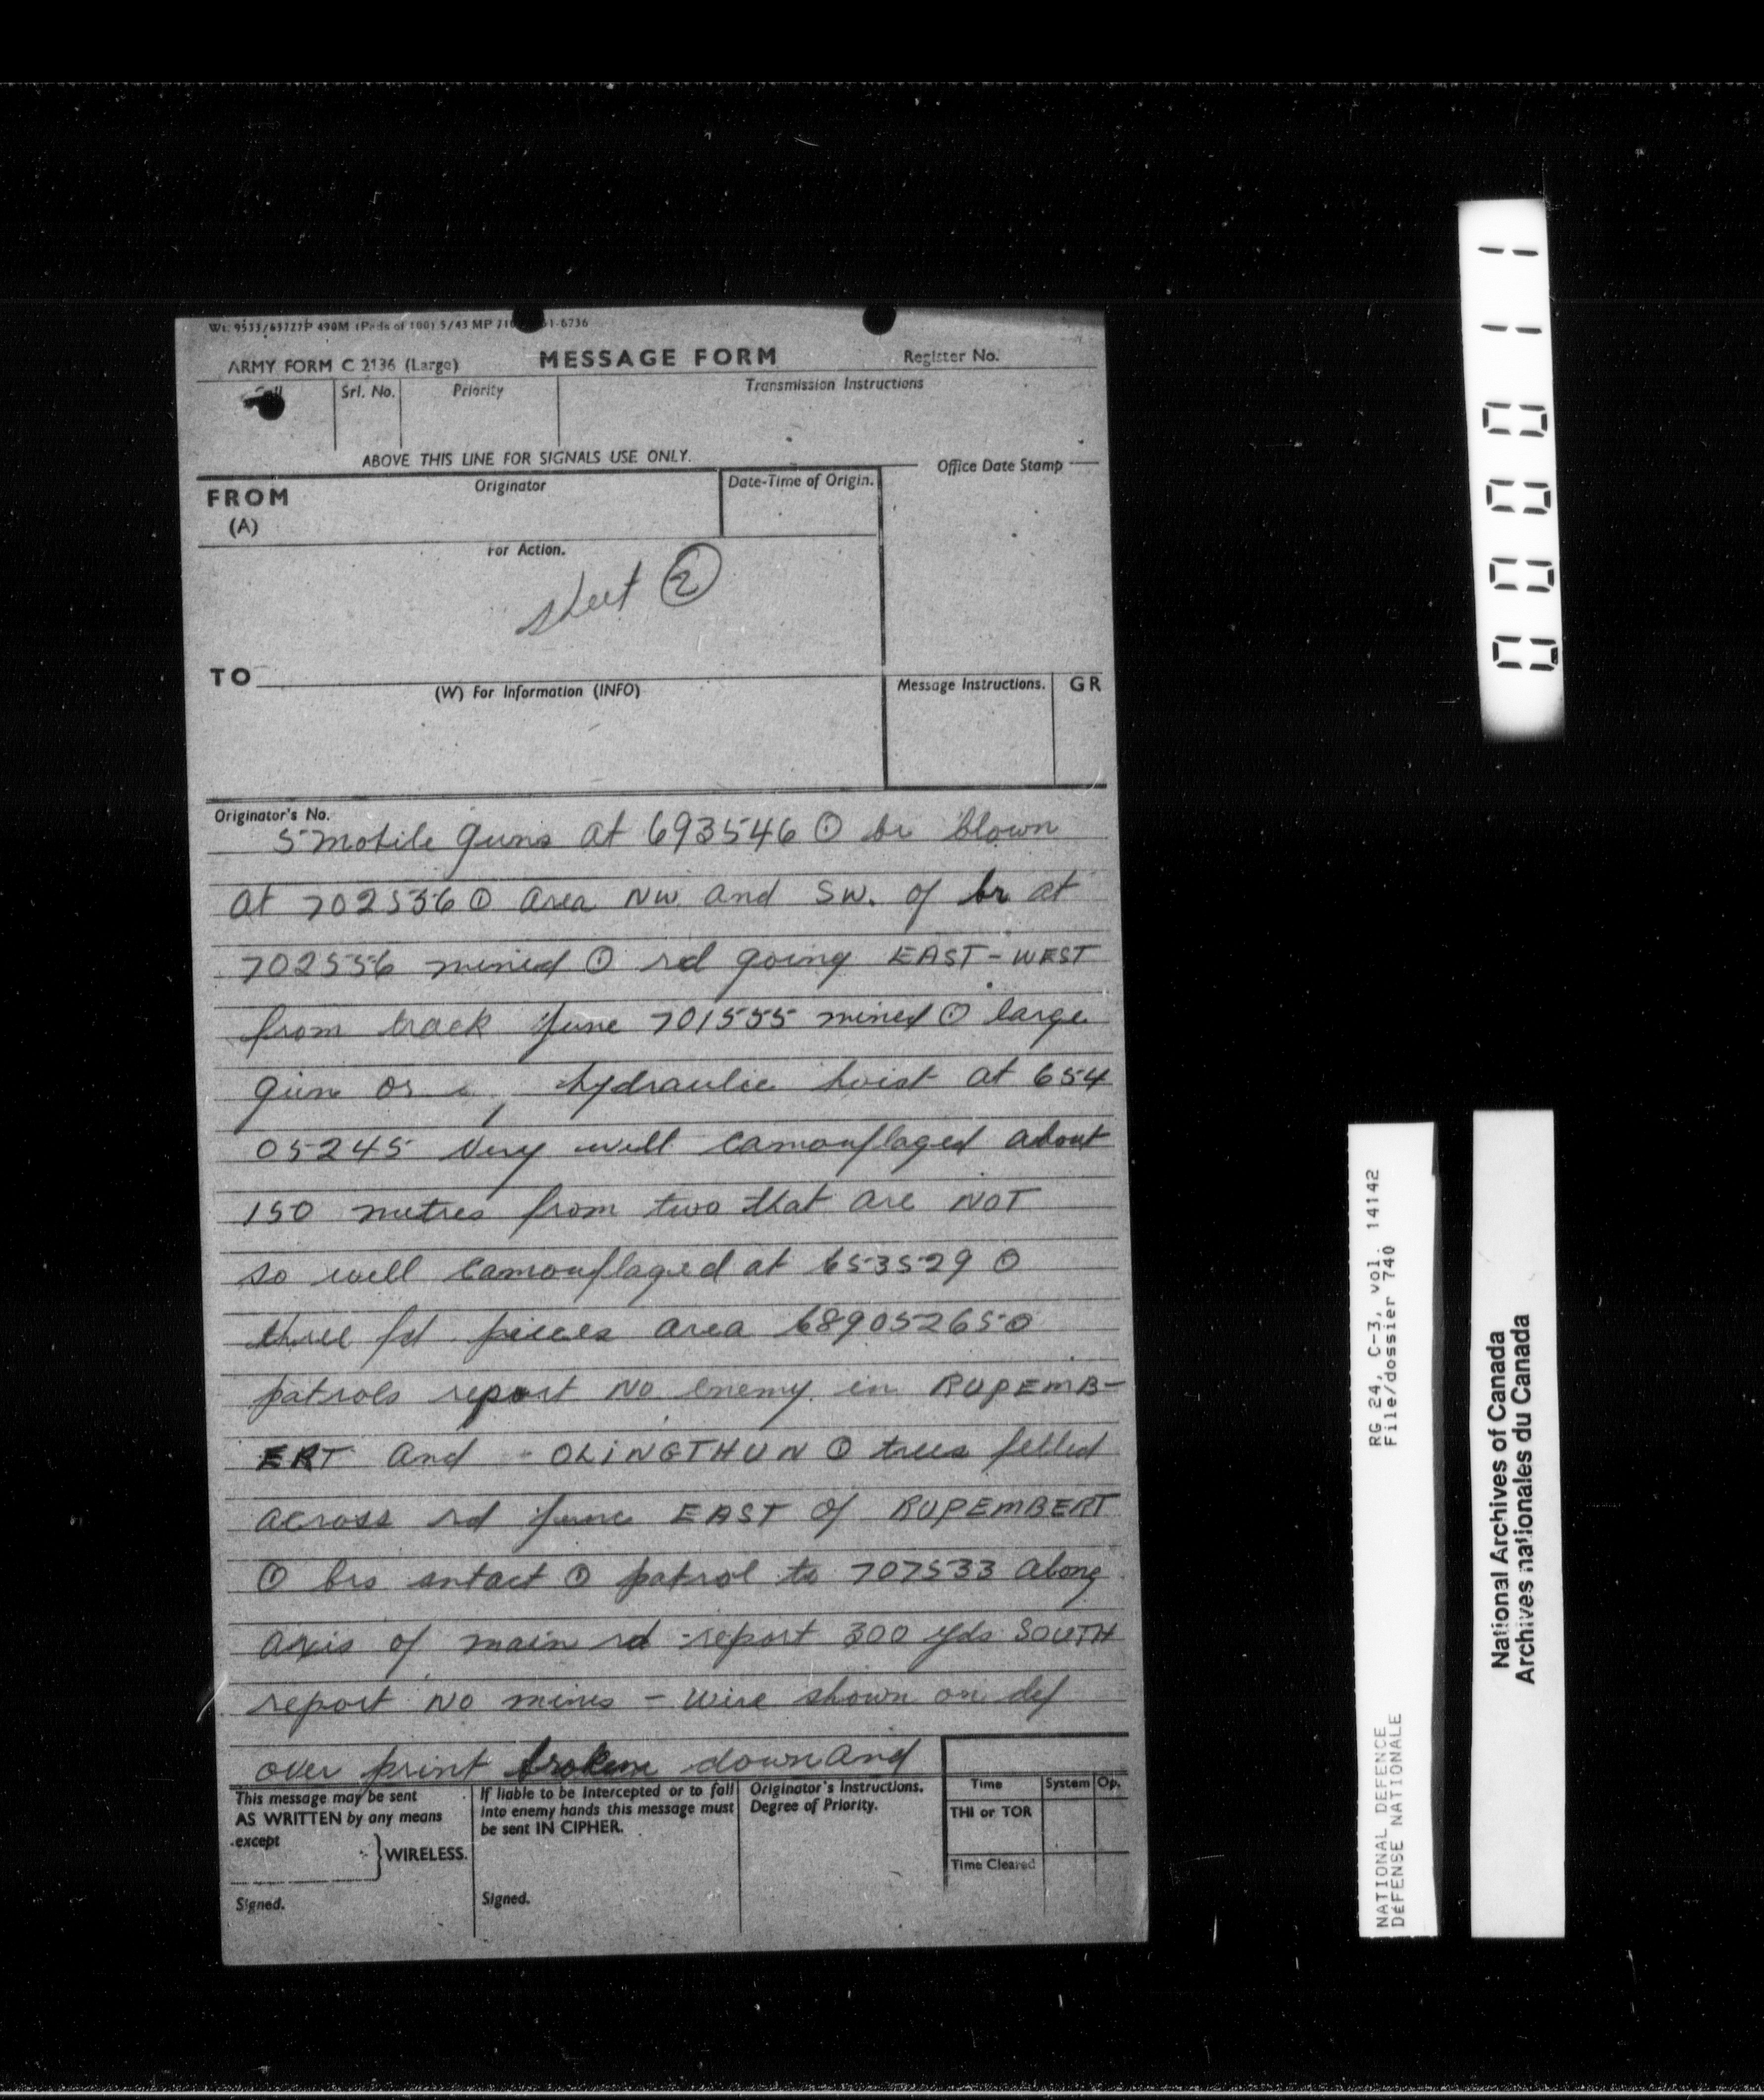 ARMY FORM C 2136 (Large)
MESSAGE FORM
Register No.
Call
Srl. No.
Priority
Transmission Instructions
ABOVE THIS LINE FOR SIGNALS USE ONLY.
FROM
(A)
Originator
Date-Time of Origin.
Office Date Stamp
For Action.
sheet ②
TO
(W) For Information (INFO)
Message Instructions.
GR
Originator's No.
5 mobile guns at 693546 ⊙ br blown
at 702536 ⊙ area NW and SW. of br at
702556 mined ⊙ rd going EAST - WEST
from track junc 701555 mined ⊙ large
gun on hydraulic hoist at 654
05245 very well camouflaged about
150 metres from two that are NOT
so well camouflaged at 653529 ⊙
three fd pieces area 68905265 ⊙
patrols report NO enemy in RUPEMB-
ERT and - OLINGTHUN ⊙ trees felled
across rd junc EAST of RUPEMBERT
⊙ brs intact ⊙ patrol to 707533 along
axis of main rd - report 300 yds SOUTH
report NO mines - wire shown on def
over print broken down and
This message may be sent
AS WRITTEN by any means
except
WIRELESS.
Signed.
If liable to be intercepted or to fall
into enemy hands this message must
be sent IN CIPHER.
Signed.
Originator's Instructions.
Degree of Priority.
Time
System
Op.
THI or TOR
Time Cleared
000011
RG 24, C-3, vol. 14142
File/dossier 740
NATIONAL DEFENCE
DÉFENSE NATIONALE
National Archives of Canada
Archives nationales du Canada